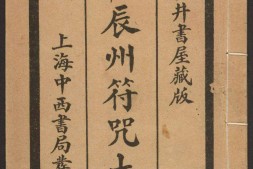 井書屋藏版
辰州符咒大
上海中西書局